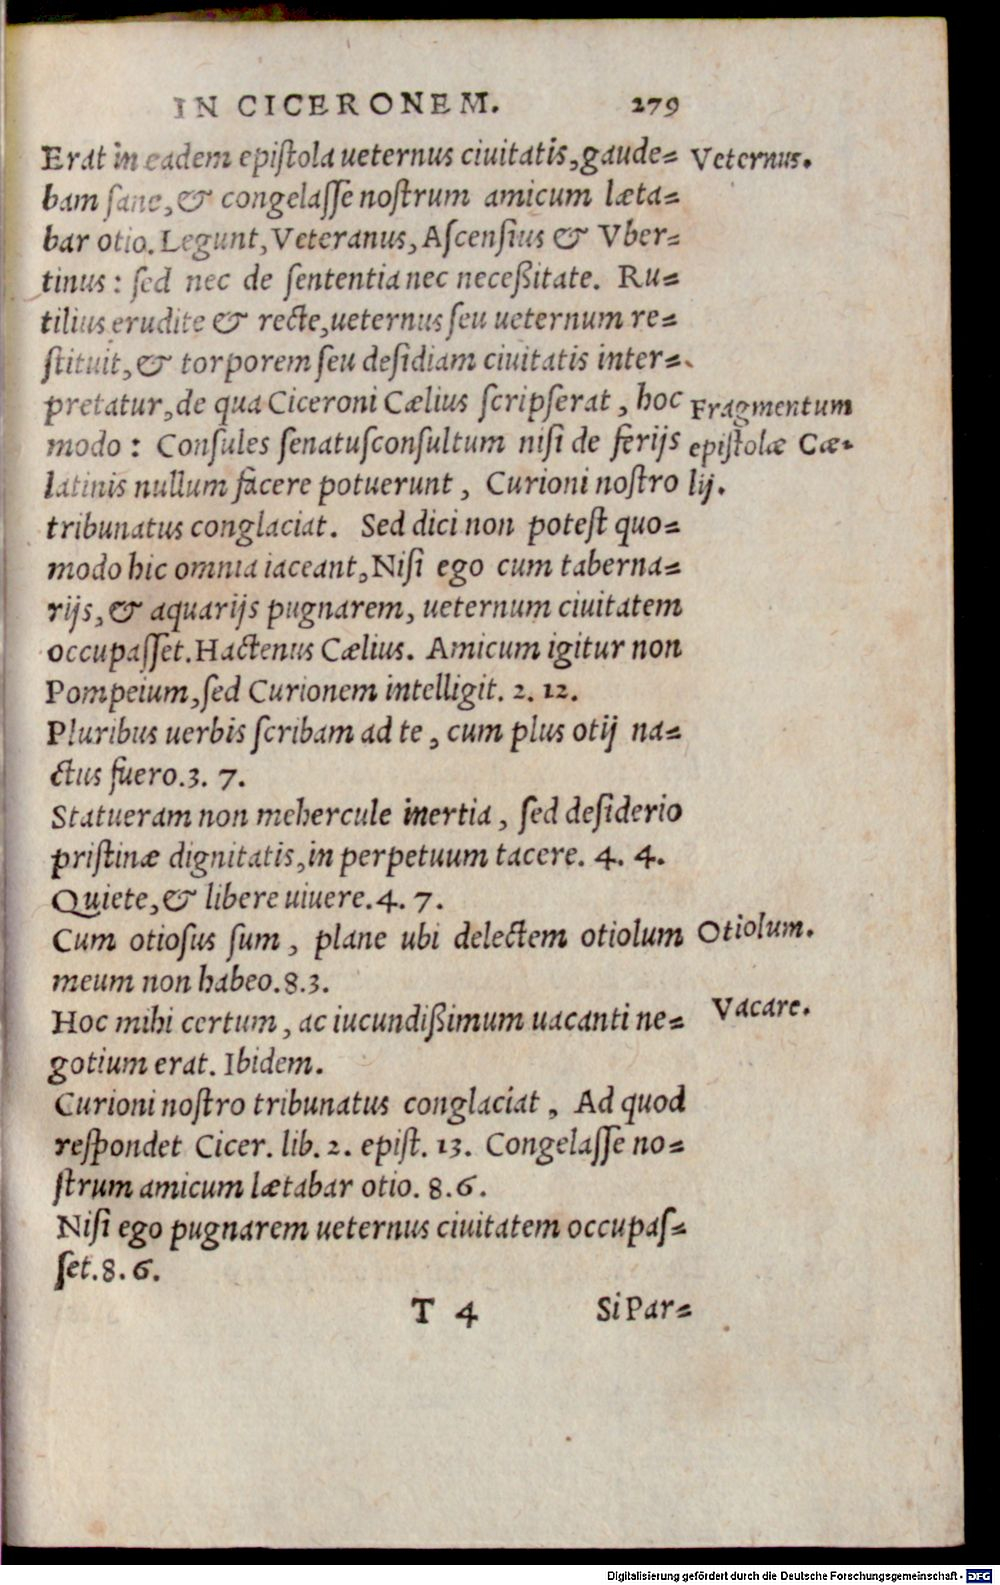 IN CICERONEM. 279
Erat in eadem epiſtola ueternus ciuitatis, gaude= Veternus.
bam ſane, & congelaſſe noſtrum amicum læta=
bar otio. Legunt, Veteranus, Aſcenſius & Vber=
tinus: ſed nec de ſententia nec neceßitate. Ru=
tilius erudite & recte, ueternus ſeu ueternum re=
ſtituit, & torporem ſeu deſidiam ciuitatis inter=
pretatur, de qua Ciceroni Cælius ſcripſerat, hoc Fragmentum
modo: Conſules ſenatuſconſultum niſi de ferijs epiſtolæ Cæ-
latinis nullum facere potuerunt, Curioni noſtro lij.
tribunatus conglaciat. Sed dici non poteſt quo=
modo hic omnia iaceant, Niſi ego cum taberna=
rijs, & aquarijs pugnarem, ueternum ciuitatem
occupaſſet. Hactenus Cælius. Amicum igitur non
Pompeium, ſed Curionem intelligit. 2. 12.
Pluribus uerbis ſcribam ad te, cum plus otij na=
ctus fuero. 3. 7.
Statueram non mehercule inertia, ſed deſiderio
priſtinæ dignitatis, in perpetuum tacere. 4. 4.
Quiete, & libere uiuere. 4. 7.
Cum otioſus ſum, plane ubi delectem otiolum Otiolum.
meum non habeo. 8. 3.
Hoc mihi certum, ac iucundißimum uacanti ne= Vacare.
gotium erat. Ibidem.
Curioni noſtro tribunatus conglaciat, Ad quod
reſpondet Cicer. lib. 2. epiſt. 13. Congelaſſe no=
ſtrum amicum lætabar otio. 8. 6.
Niſi ego pugnarem ueternus ciuitatem occupaſ=
ſet. 8. 6.
T 4 Si Par=
Digitalisierung gefördert durch die Deutsche Forschungsgemeinschaft - DFG